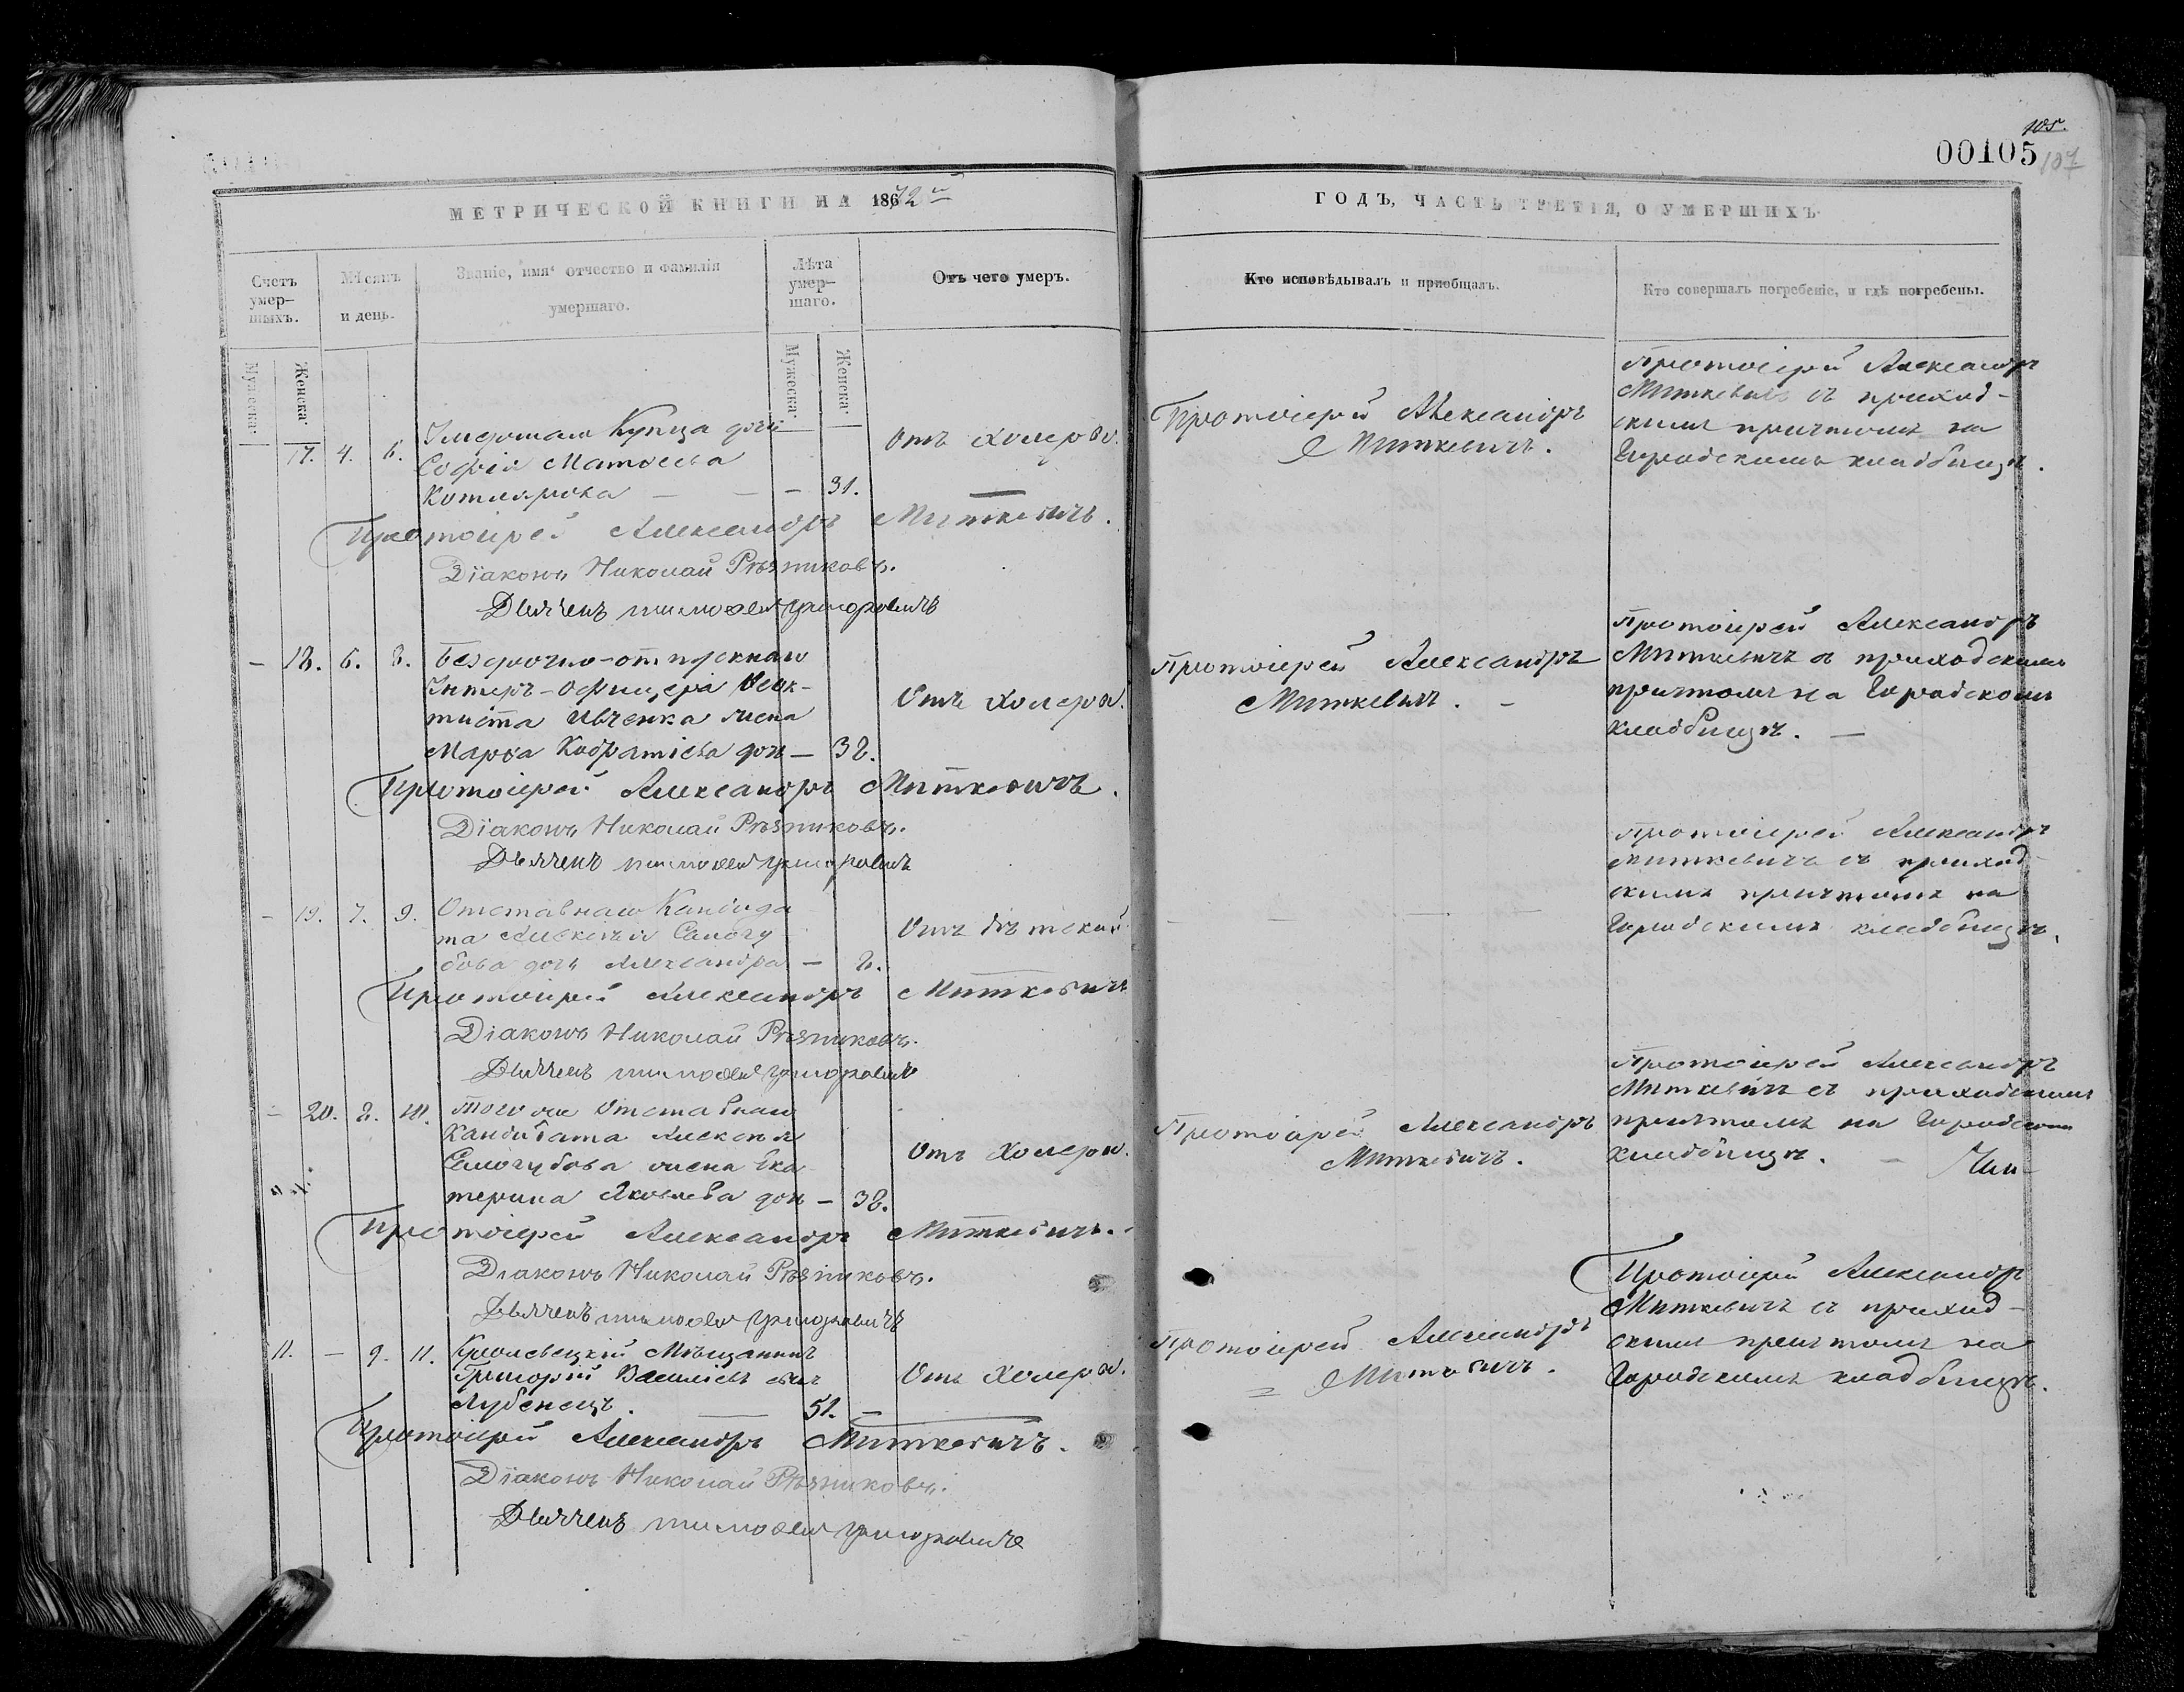 105.
00105
107
МЕТРИЧЕСКОЙ КНИГИ НА 1872
ГОДЪ, ЧАСТЬ ТРЕТІЯ, О УМЕРШИХЪ
Счетъ умер-
шыхъ.
Мѣсяцъ
и день.
Званіе, имя, отчество и фамилія
умершаго.
Лѣта
умер-
шаго.
Отъ чего умеръ.
Кто исповѣдывалъ и приобщалъ.
Кто совершалъ погребеніе, и гдѣ погребены.
Мужеска.
Женска.
Мужеска.
Женска.
17. 4. 6.
Купца дочь
Софія Матвеева
— — — 31.
Отъ холеры.
Протоіерей Александръ
Миткевичъ.
Протоіерей Александръ
Миткевичъ съ приход-
скимъ причтомъ на
Городскомъ кладбищѣ.
Протоіерей Александръ Миткевичъ.
Діаконъ Николай Рѣзниковъ.
Дьячекъ Тимофей Григоровичъ
— 18. 6. 8.
Безсрочно-отпускнаго
Унтеръ-Офицера Феок-
тиста Ивченка жена
Марфа Кодратіева дочь — 38.
Отъ холеры.
Протоіерей Александръ
Миткевичъ. —
Протоіерей Александръ
Миткевичъ съ приходскимъ
причтомъ на Городскомъ
кладбищѣ. —
Протоіерей Александръ Миткевичъ.
Діаконъ Николай Рѣзниковъ.
Дьячекъ Тимофей Григоровичъ
— 19. 7. 9.
Отставнаго Кандида
та Алексѣя Самогу
бова дочь Александра — 2.
Отъ дѣтской
— — — —
Протоіерей Александръ
Миткевичъ съ приход-
скимъ причтомъ на
Городскомъ кладбищѣ.
Протоіерей Александръ Миткевичъ
Діаконъ Николай Рѣзниковъ.
Дьячекъ Тимофей Григоровичъ
— 20. 8. 10.
Того же Отставнаго
Кандидата Алексѣя
Самогубова жена Ека-
терина Яковлева дочь — 38.
Отъ холеры.
Протоіерей Александръ
Миткевичъ.
Протоіерей Александръ
Миткевичъ съ приходскимъ
причтомъ на Городскомъ
кладбищѣ. —
Протоіерей Александръ Миткевичъ.
Діаконъ Николай Рѣзниковъ.
Дьячекъ Тимофей Григоровичъ
11. — 9. 11.
Кролевецкій Мѣщанинъ
Григорій Васильевичъ
Лубенецъ. — 51. —
Отъ холеры.
Протоіерей Александръ
Миткевичъ.
Протоіерей Александръ
Миткевичъ съ приход-
скимъ причтомъ на
Городскомъ кладбищѣ.
Протоіерей Александръ Миткевичъ.
Діаконъ Николай Рѣзниковъ.
Дьячекъ Тимофей Григоровичъ